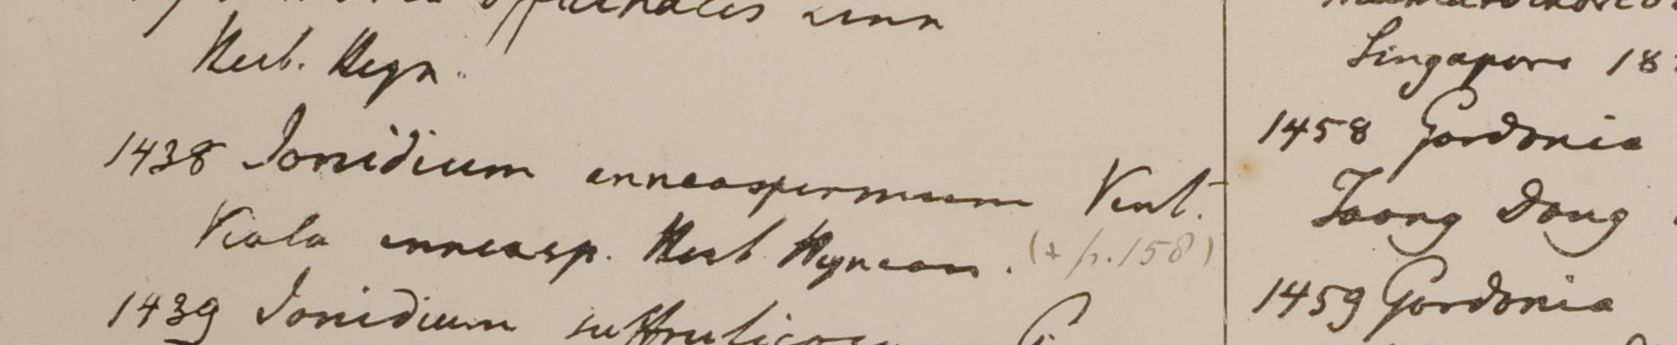 officinalis Linn
Herb. Heyn.
1438 Ionidium enneaspermum Vent.
Viola enneasp. Herb Heynean. (+ p. 158)
1439 Ionidium suffruticosum G
Singapore 18
1458 Gordonia
Toong Dong
1459 Gordonia